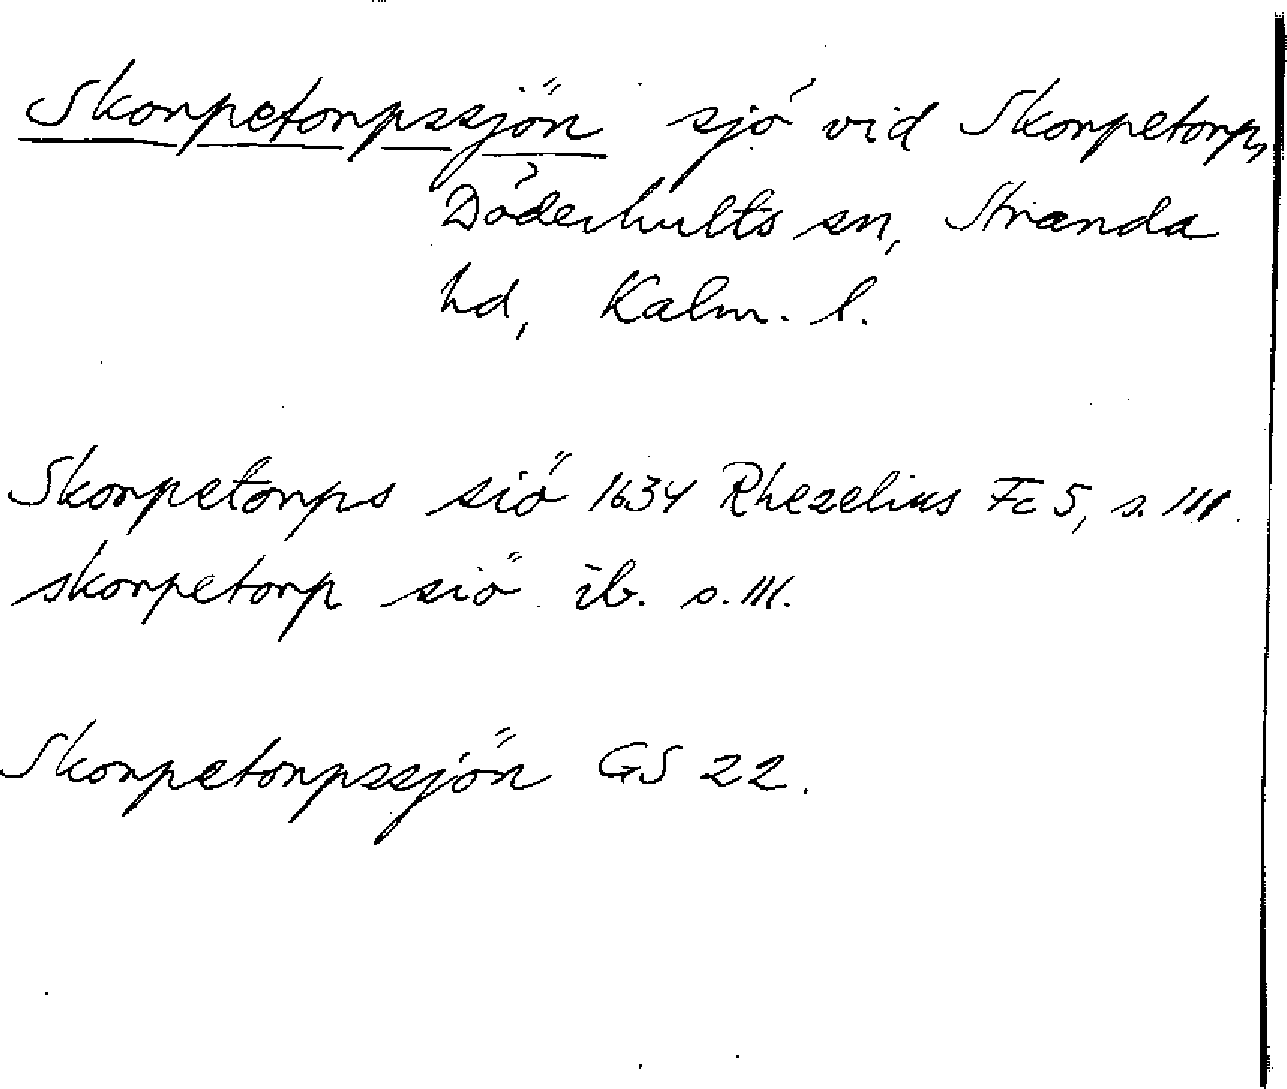 Skorpetorpssjön sjö vid Skorpetorp,
Döderhults sn, Stranda
hd, Kalm. l.
Skorpetorps siö 1634 Rhezelius Fc 5, s. 111.
skorpetorp siö ib. s. 111.
Skorpetorpssjön GS 22.